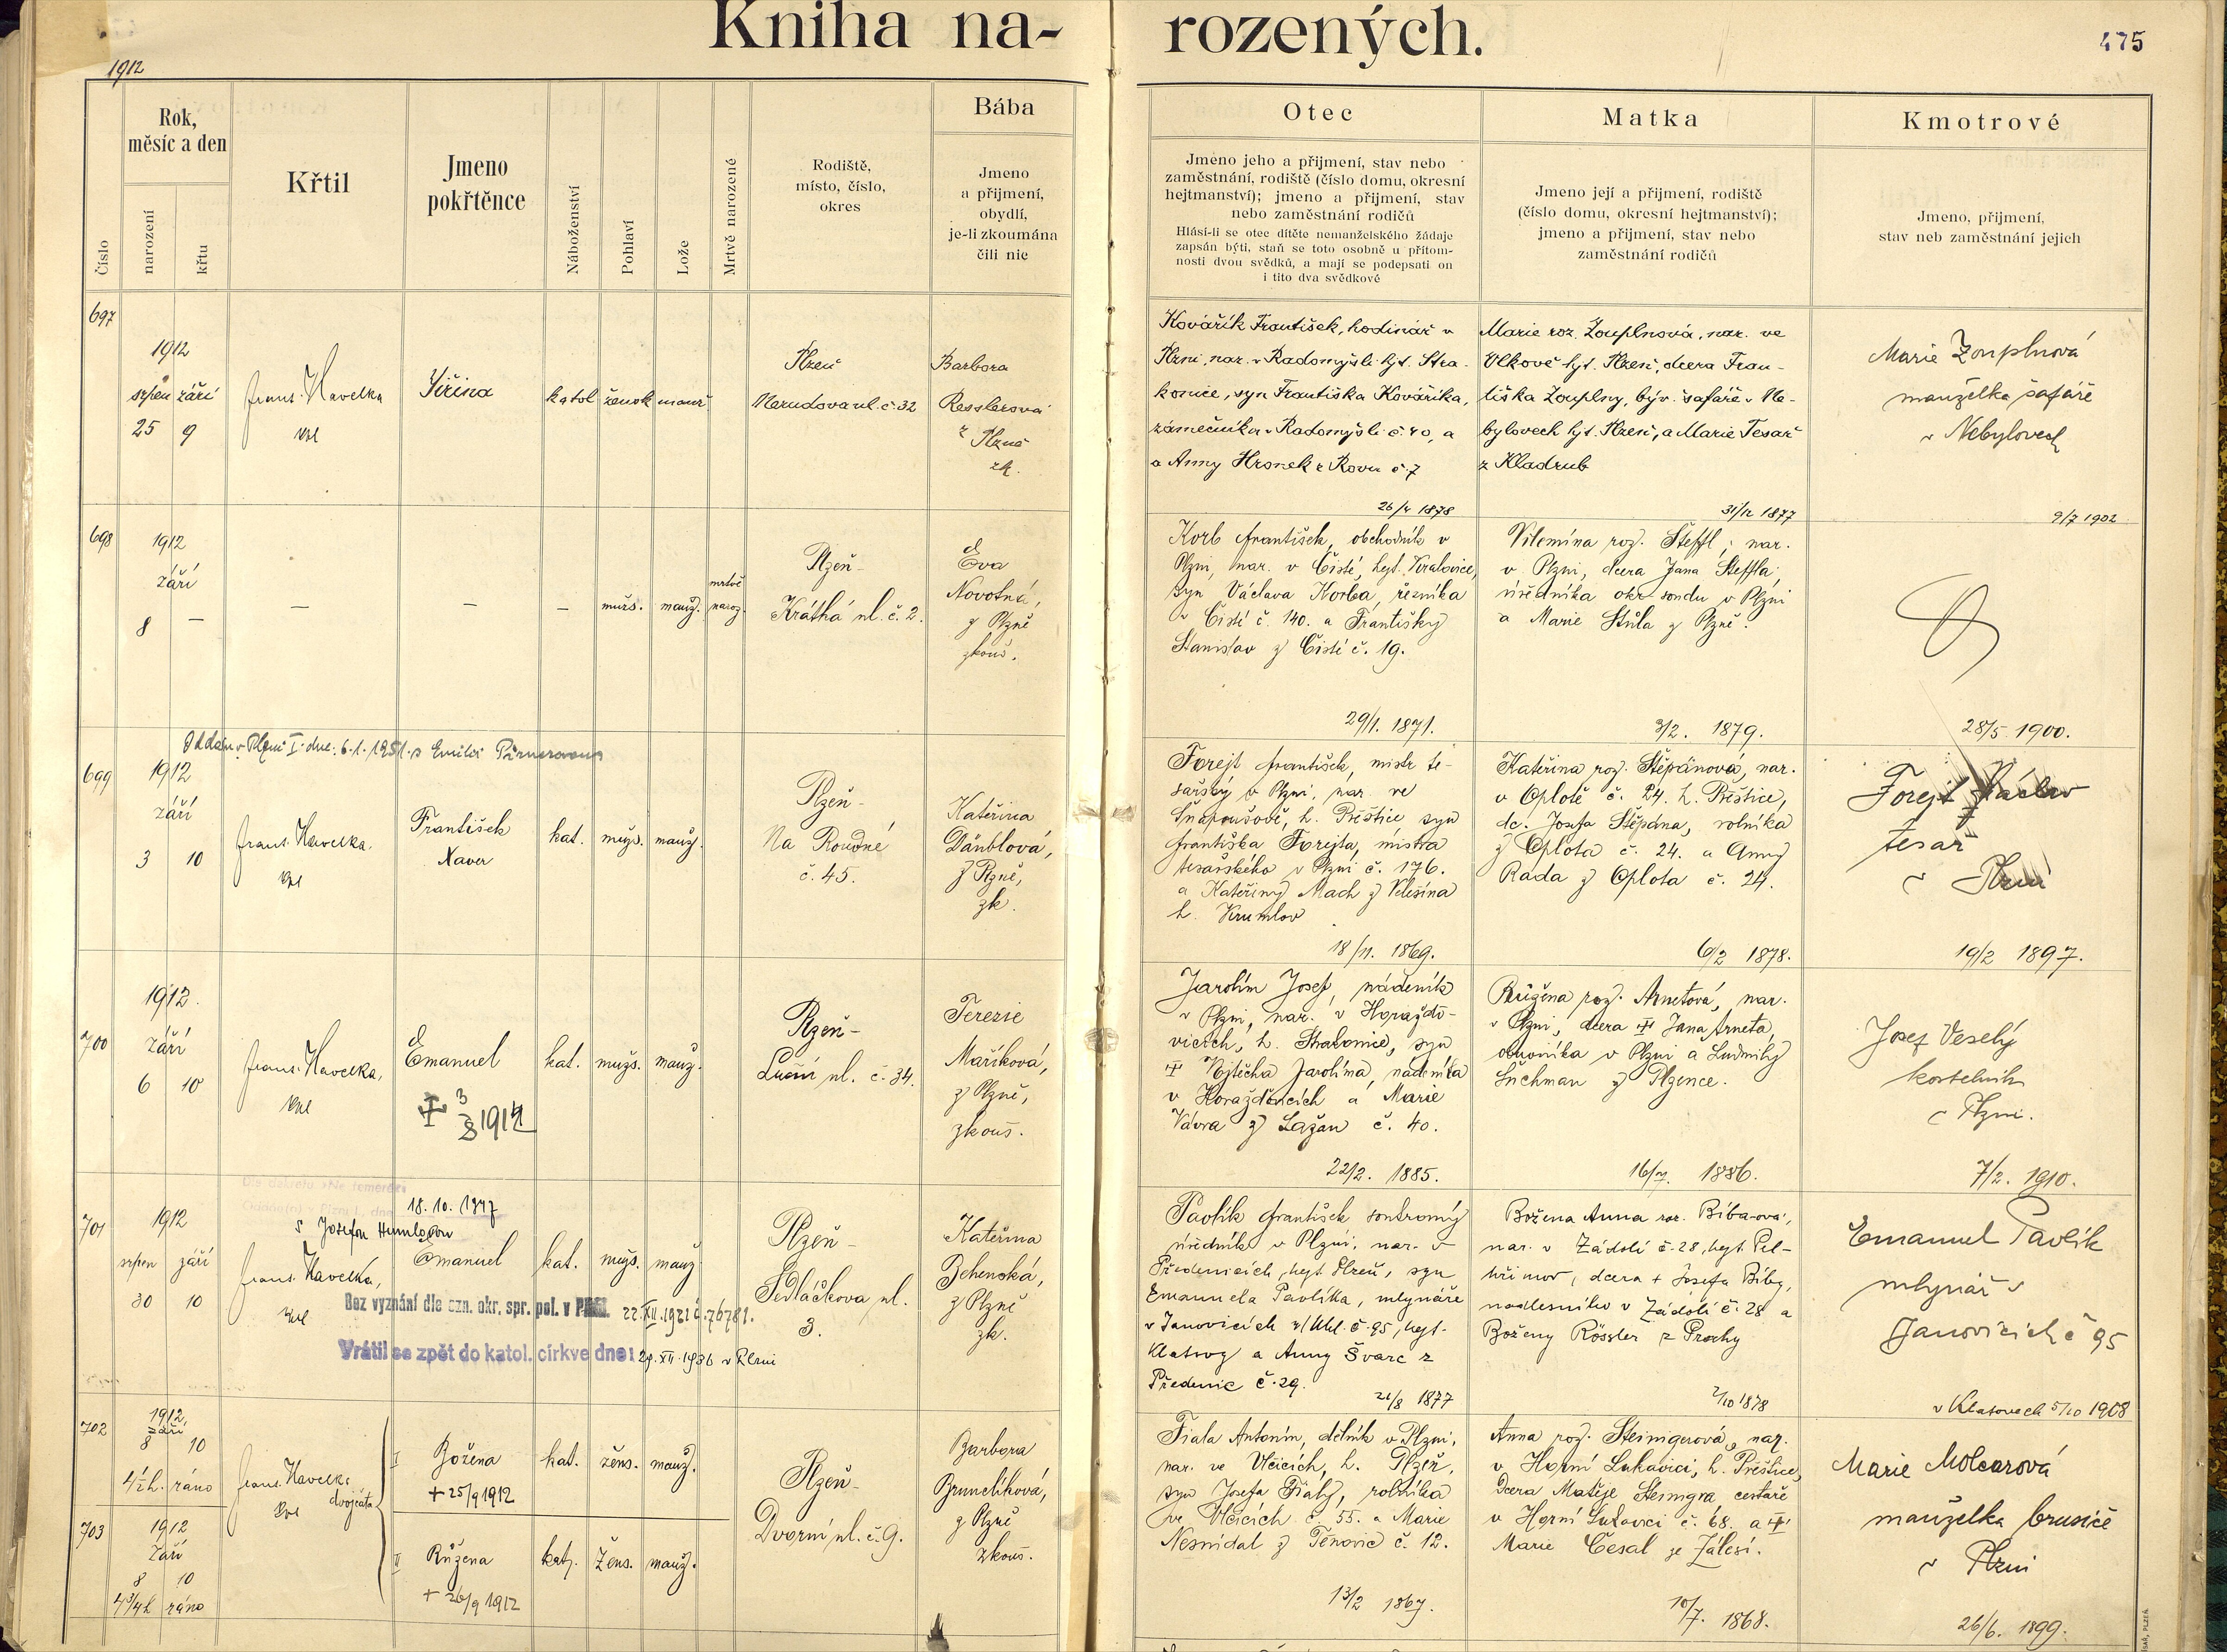 Kniha na- rozených.
475
1912
Číslo
Rok,
měsíc a den
narození
křtu
Křtil
Jmeno
pokřtěnce
Náboženství
Pohlaví
Lože
Mrtvě narozené
Rodiště,
místo, číslo,
okres
Bába
Jmeno
a přijmení,
obydlí,
je-li zkoumána
čili nic
Otec
Jmeno jeho a přijmení, stav nebo
zaměstnání, rodiště (číslo domu, okresní
hejtmanství); jmeno a přijmení, stav
nebo zaměstnání rodičů
Hlásí-li se otec dítěte nemanželského žádaje
zapsán býti, staň se toto osobně u přítom-
nosti dvou svědků, a mají se podepsati on
i tito dva svědkové
Matka
Jmeno její a přijmení, rodiště
(číslo domu, okresní hejtmanství);
jmeno a přijmení, stav nebo
zaměstnání rodičů
Kmotrové
Jmeno, přijmení,
stav neb zaměstnání jejich
697
1912
srpen září
25 9
Frant. Havelka
kpl
Jiřina
katol žensk manž
Plzeň
Nerudova ul. č. 32
Barbora
Resslerová
z Plzně
zk.
Kovářík František, hodinář v
Plzni, nar. v Radomyšli hjt. Stra-
konice, syn Františka Kováříka,
zámečníka v Radomyšli č. 40, a
a Anny Hronek z Rovu č. 7
26/4 1878
Marie roz. Zouplnová, nar. ve
Vlkově hjt. Plzeň, dcera Fran-
tiška Zouplny, býv. šafáře v Ne-
bylovech hjt. Plzeň, a Marie Tesař
z Kladrub
31/12 1877
Marie Zouplnová
manželka šafáře
v Nebylovech
9/7 1902
698
1912
září
8 —
— — —
mužs. manž.
mrtvě
naroz.
Plzeň-
Krátká ul. č. 2.
Eva
Novotná,
z Plzně
zkouš.
Korb František, obchodník v
Plzni, nar. v Čisté, hejt. Kralovice,
syn Václava Korba, řezníka
v Čisté č. 140. a Františky
Stanislav z Čisté č. 19.
29/1. 1871.
Vilemína roz. Šteffl, nar.
v Plzni, dcera Jana Šteffla,
úředníka okr. soudu v Plzni
a Marie Stula z Plzně.
3/2. 1879.
28/5 1900.
Oddán v Plzni I. dne: 6.1.1951. s Emilií
699
1912
září
3 10
Frant. Havelka.
kpl
František
Xaver
kat. mužs. manž.
Plzeň-
Na Roudné
č. 45.
Kateřina
Dänblová,
z Plzně,
zk.
Forejt František, mistr te-
sařský v Plzni, nar. ve
Šnopoušově, h. Přeštice syn
Františka Forejta, mistra
tesařského v Plzni č. 176.
a Kateřiny Mach z Velešína
h. Krumlov
18/11. 1869.
Kateřina roz. Štěpánová, nar.
v Oplotě č. 24. h. Přeštice,
dc. Josefa Štěpána, rolníka
z Oplota č. 24. a Anny
Rada z Oplota č. 24.
6/2 1878.
Forejt Václav
tesař
v Plzni
19/2 1897.
700
1912.
září
6 10
Frant. Havelka,
kpl
Emanuel
kat. mužs. manž.
Plzeň-
Luční ul. č. 34.
Terezie
Maříková,
z Plzně,
zkouš.
Jarolím Josef, nádeník
v Plzni, nar. v Horažďo-
vicích, h. Strakonice, syn
Vojtěcha Jarolíma, nádeníka
v Horažďovicích a Marie
Vávra z Lažan č. 40.
22/2. 1885.
Růžena roz. Arnetová, nar.
v Plzni, dcera Jana Arneta,
obuvníka v Plzni a Ludmily
Šuchman z Plzence.
16/7. 1886.
Josef Veselý
kostelník
v Plzni.
7/2. 1910.
18. 10. 1947
701
1912
srpen září
30 10
Frant. Havelka,
kpl
Emanuel
kat. mužs. manž
Bez vyznání dle ozn. okr. spr. pol. v Plzni. 22.XII.1921 č. 76781.
Vrátil se zpět do katol. církve dne: 29.XII.1936 v Plzni
Plzeň-
Sedláčkova ul.
3.
Kateřina
Zchenská,
z Plzně
zk.
Pavlík František, soukromý
úředník v Plzni, nar. v
Předenicích, hejt. Plzeň, syn
Emanuela Pavlíka, mlynáře
v Janovicích n/Uhl. č. 95, hejt.
Klatovy a Anny Švarc z
Předenic č. 29.
21/8 1877
Božena Anna roz. Bíba-ová,
nar. v Zádolí č. 28, hejt. Pel-
hřimov, dcera + Josefa Bíby,
nadlesního v Zádolí č. 28 a
Boženy Rössler z Prahy
2/10 1878
Emanuel Pavlík
mlynář v
Janovicích č 95
v Klatovech 5/10 1908
702
1912
září
8 10
4 1/2 h. ráno
Frant. Havelka
kpl
dvojčata
I Božena
+ 25/9 1912
kat. žens. manž.
Plzeň-
Dvorní ul. č. 9.
Barbora
Brunclíková,
z Plzně
zkouš.
Fiala Antonín, dělník v Plzni,
nar. ve Vlčicích, h. Plzeň,
syn Josefa Fialy, rolníka
ve Vlčicích č. 55. a Marie
Nesnídal z Těnovic č. 12.
13/2 1867.
Anna roz. Steinigerová, nar.
v Horní Lukavici, h. Přeštice,
dcera Matěje Steinigra, cestáře
v Horní Lukavici č. 68. a
Marie Česal ze Zálesí.
10/7. 1868.
Marie Molcarová
manželka brusiče
v Plzni
26/6. 1899.
703
1912
září
8 10
4 3/4 h ráno
II Růžena
+ 26/9 1912
kat. žens. manž.